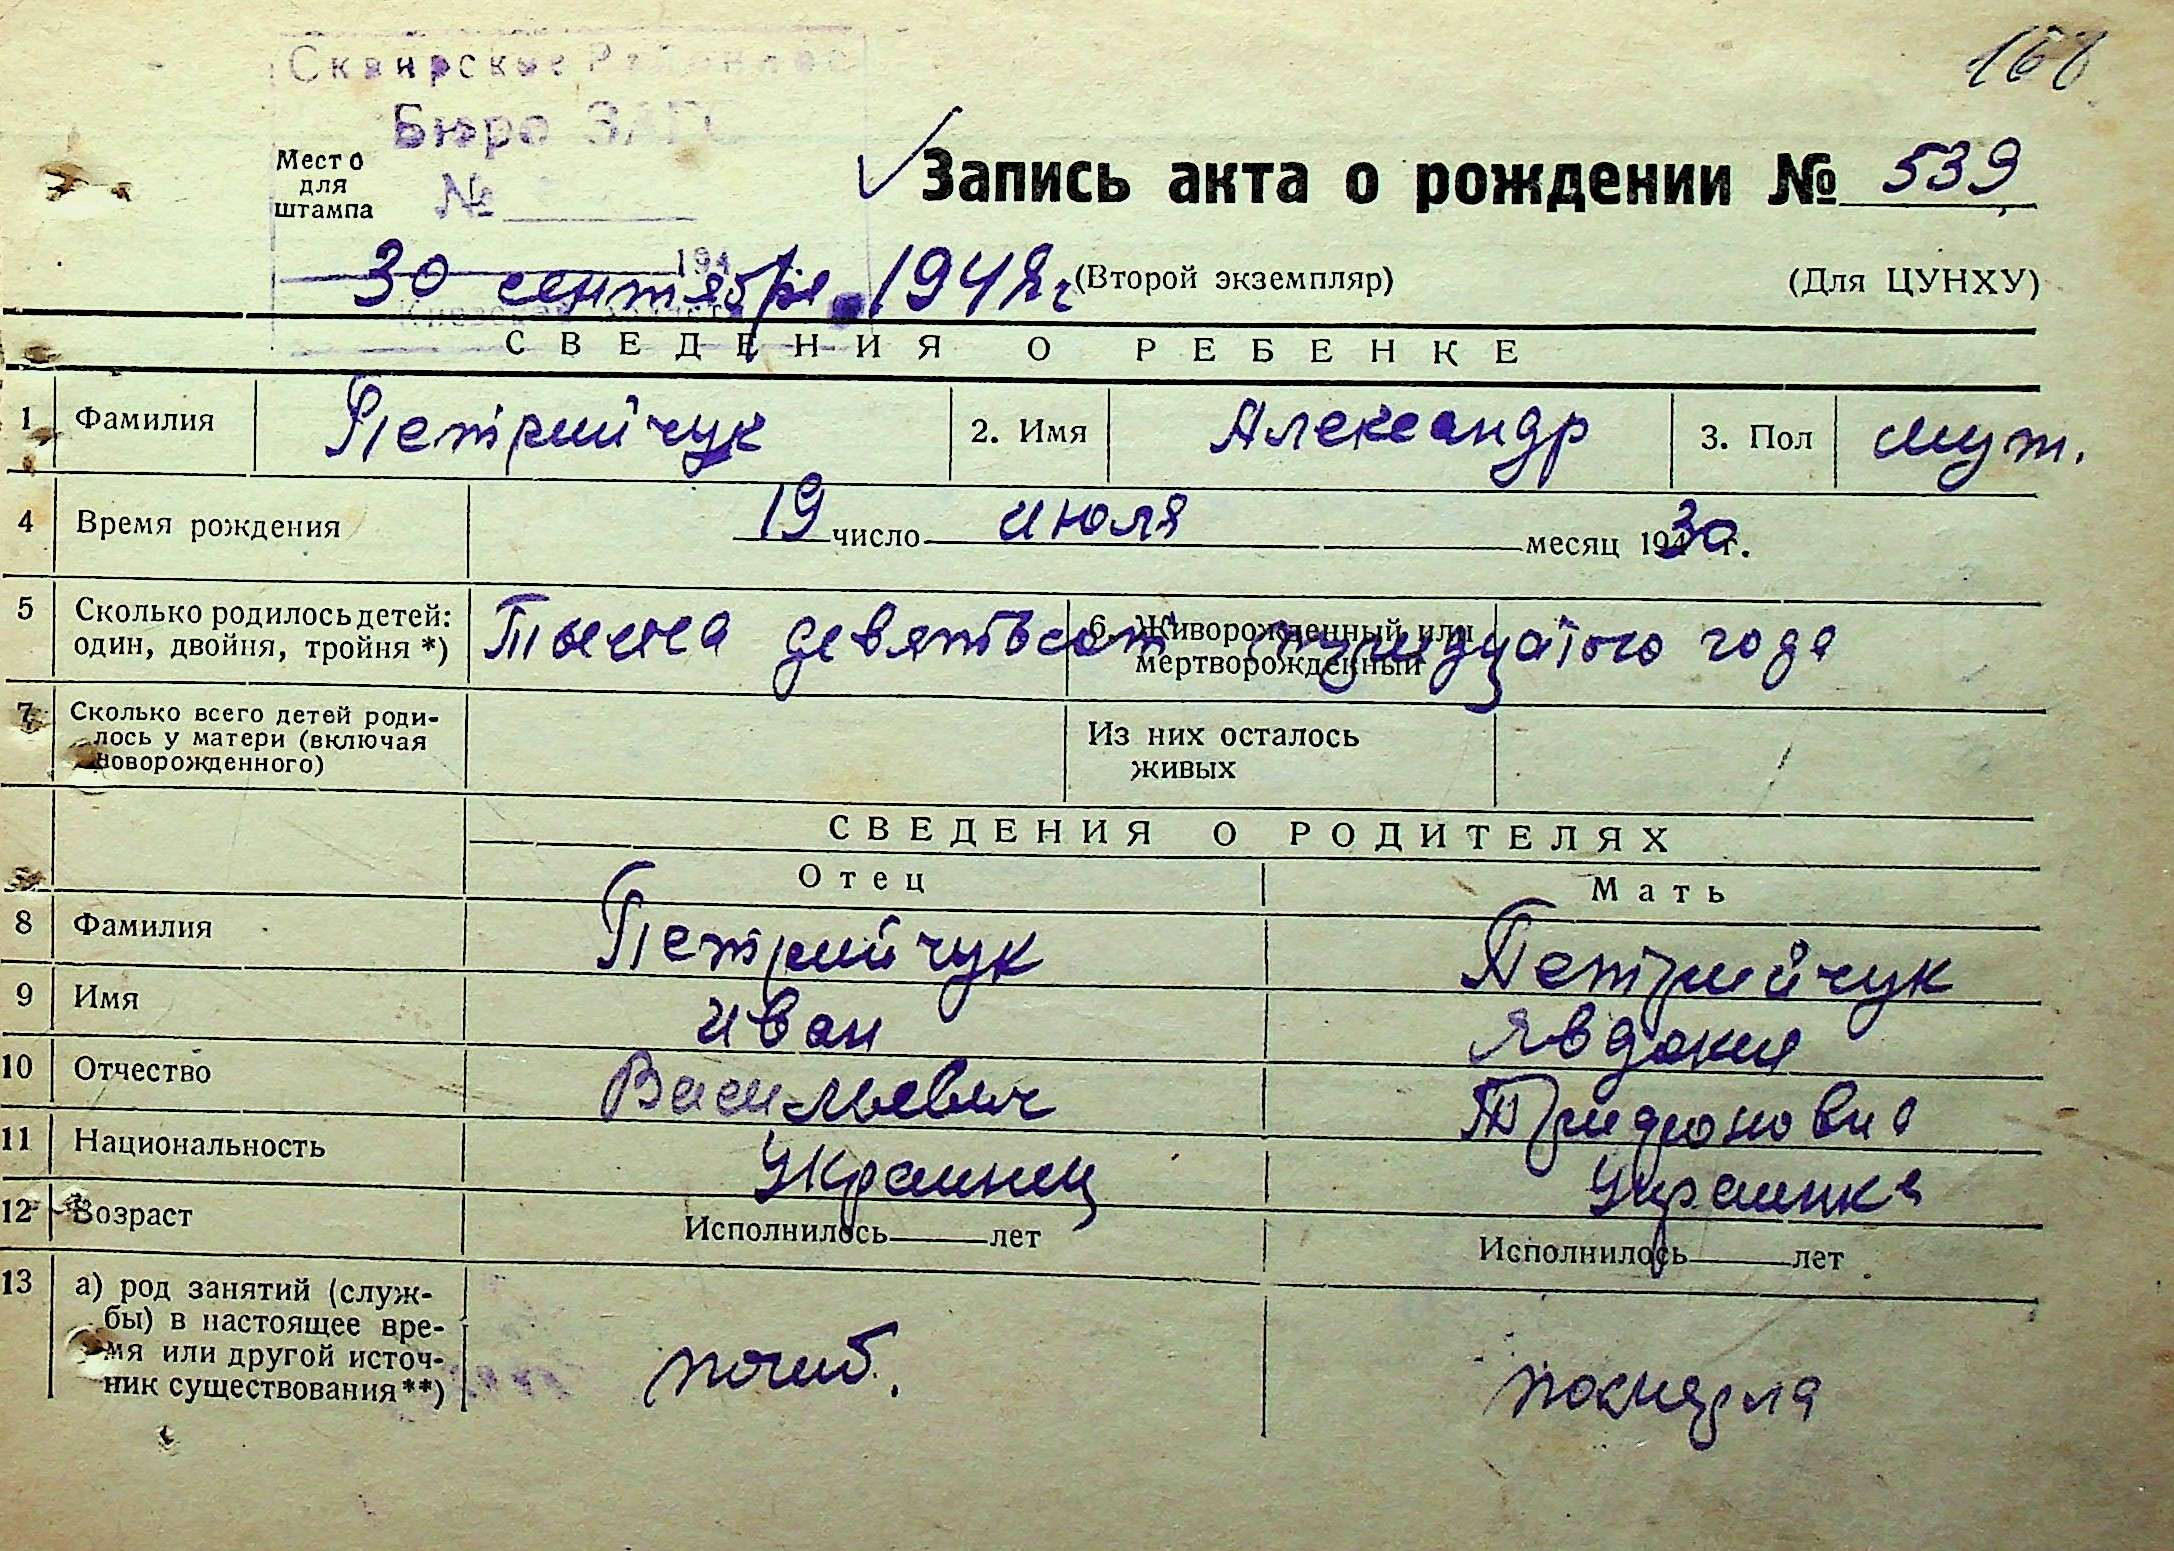 168
Сквирское Районное
Бюро ЗАГС
Место для штампа
№
Запись акта о рождении № 539
194
30 сентября 1948 г (Второй экземпляр) (Для ЦУНХУ)
СВЕДЕНИЯ О РЕБЕНКЕ
1 Фамилия Петрийчук 2. Имя Александр 3. Пол муж.
4 Время рождения 19 число июля месяц 1930 г.
5 Сколько родилось детей: 6. Живорожденный или
один, двойня, тройня *) Тысяча девятьсот тридцатого года
мертворожденный
7 Сколько всего детей роди-
лось у матери (включая Из них осталось
новорожденного) живых
СВЕДЕНИЯ О РОДИТЕЛЯХ
Отец Мать
8 Фамилия Петрийчук Петрийчук
9 Имя Иван Явдокия
10 Отчество Васильевич
11 Национальность Украинец Украинка
12 Возраст Исполнилось лет Исполнилось лет
13 а) род занятий (служ-
бы) в настоящее вре-
мя или другой источ- погиб.
ник существования**)